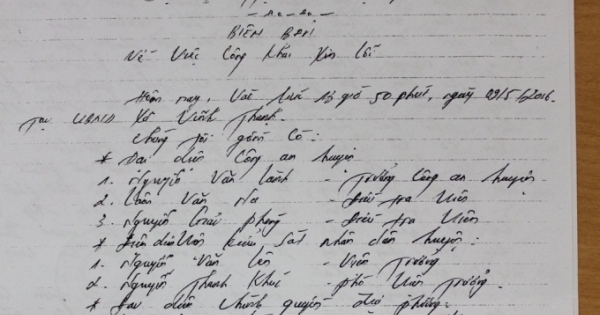 BIÊN BẢN
Về Việc Công Khai Xin Lỗi
Hôm nay, Vào lúc 13 giờ 50 phút, ngày 09/5/2016.
Tại UBND Xã Vĩnh Thạnh.
Chúng tôi gồm có:
* Đại diện Công an huyện
1. Nguyễn Văn Lành - Trưởng Công an huyện.
2. Văn Na - Điều tra Viên
3. Nguyễn Phong - Điều tra Viên
* Đại diện Viện kiểm sát nhân dân huyện:
1. Nguyễn Văn - Viện Trưởng
2. Nguyễn Thanh Khúc - phó Viện Trưởng.
* Đại diện chính quyền địa phương.